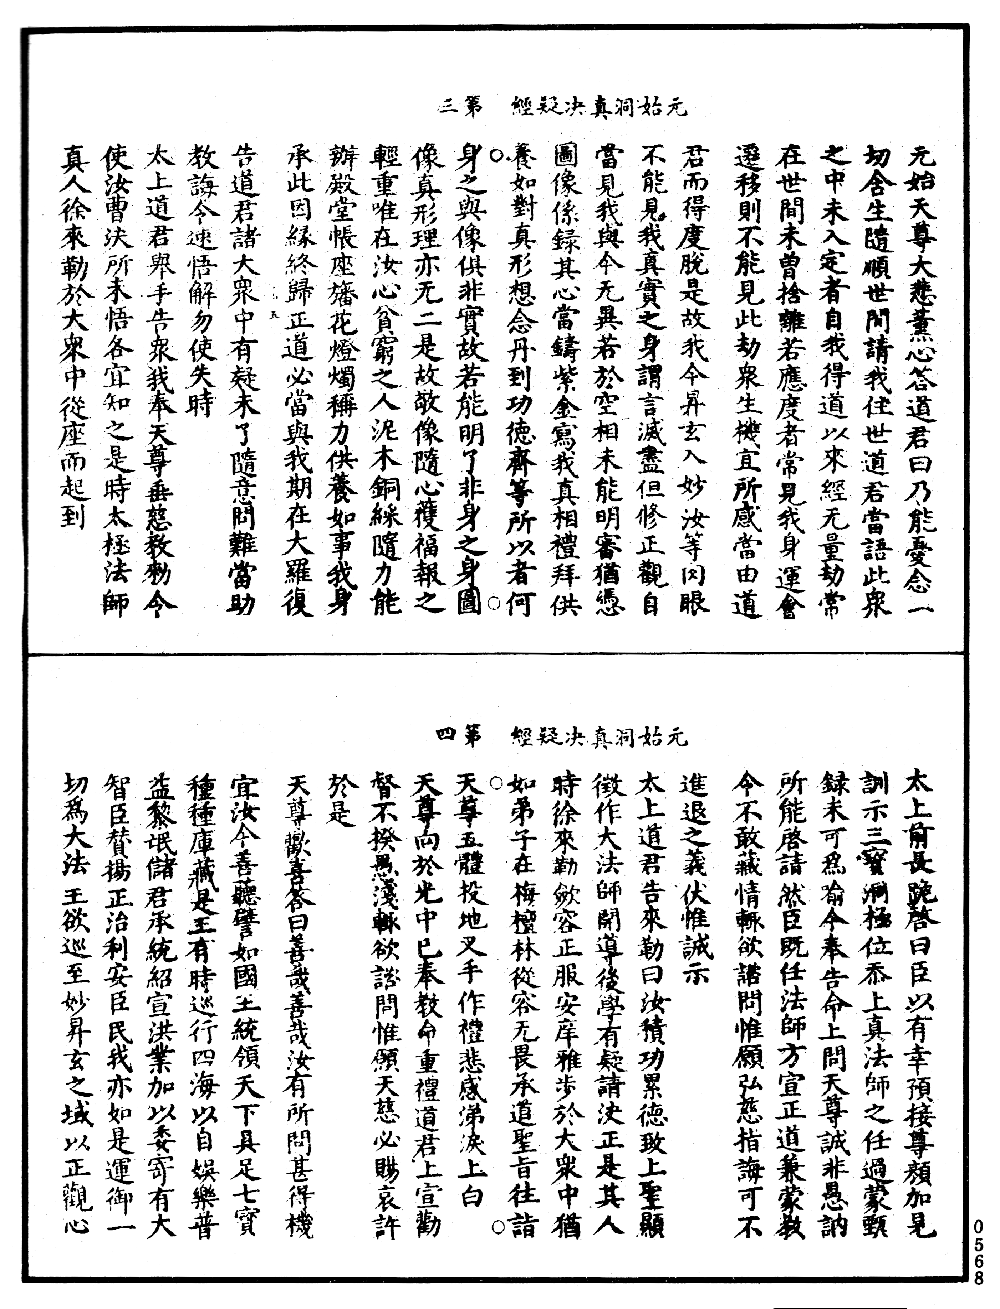 元始洞真決疑經　第三
元始天尊大悲薰心答道君曰乃能憂念一
切含生隨順世間請我住世道君當語此衆
之中未入定者自我得道以來經无量劫常
在世間未曾捨離若應度者常見我身運會
遷移則不能見此劫衆生機宜所感當由道
君而得度脫是故我今昇玄入妙汝等肉眼
不能見我真實之身謂言滅盡但修正觀自
當見我與今无異若於空相未能明審猶憑
圖像係錄其心當鑄紫金寫我真相禮拜供
養如對真形想念丹到功德齊等所以者何
身之與像俱非實故若能明了非身之身圖
像真形理亦无二是故敬像隨心獲福報之
輕重唯在汝心貧窮之人泥木銅綵隨力能
辦殿堂帳座旛花燈燭稱力供養如事我身
承此因緣終歸正道必當與我期在大羅復
五
告道君諸大衆中有疑未了隨意問難當助
教誨今速悟解勿使失時
太上道君舉手告衆我奉天尊垂慈教勑今
使汝曹決所未悟各宜知之是時太極法師
真人徐來勒於大衆中從座而起到
元始洞真決疑經　第四
太上前長跪啓曰臣以有幸預接尊顏加見
訓示三寶洞極位忝上真法師之任過蒙甄
録未可爲喻今奉告命上問天尊誠非愚訥
所能啓請然臣既任法師方宣正道兼蒙教
令不敢藏情輒欲諮問惟願弘慈指誨可不
進退之義伏惟誠示
太上道君告來勒曰汝積功累德致上聖顯
徵作大法師開導後學有疑請決正是其人
時徐來勒斂容正服安庠雅步於大衆中猶
如弟子在栴檀林從容无畏承道聖旨往詣
天尊五體投地叉手作禮悲感涕淚上白
天尊向於光中已奉教命重禮道君上宣勸
督不揆愚淺輒欲諮問惟願天慈必賜哀許
於是
天尊歡喜答曰善哉善哉汝有所問甚得機
宜汝今善聽譬如國王統領天下具足七寶
種種庫藏是王有時巡行四海以自娛樂普
益黎氓儲君承統紹宣洪業加以委寄有大
智臣賛揚正治利安臣民我亦如是運御一
切爲大法王欲巡至妙昇玄之域以正觀心
0568